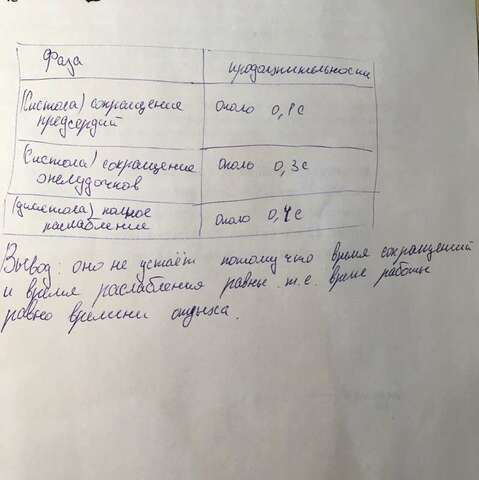 Фаза продолжительность
(Систола) сокращение около 0,1с
предсердий
(Систола) сокращение около 0,3с
желудочков
(диастола) полное около 0,4с
расслабление
Вывод: оно не устаёт потому что время сокращений
и время расслабления равны т.е. время работы
равно времени отдыха.